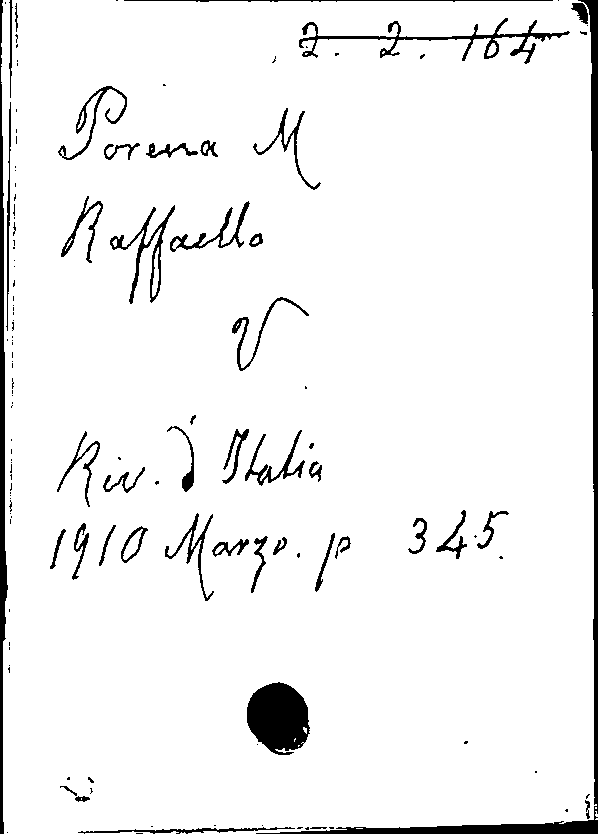 2. 2. 164
Porena M
Raffaello
V
Riv. d'Italia
1910 Marzo. p 345.